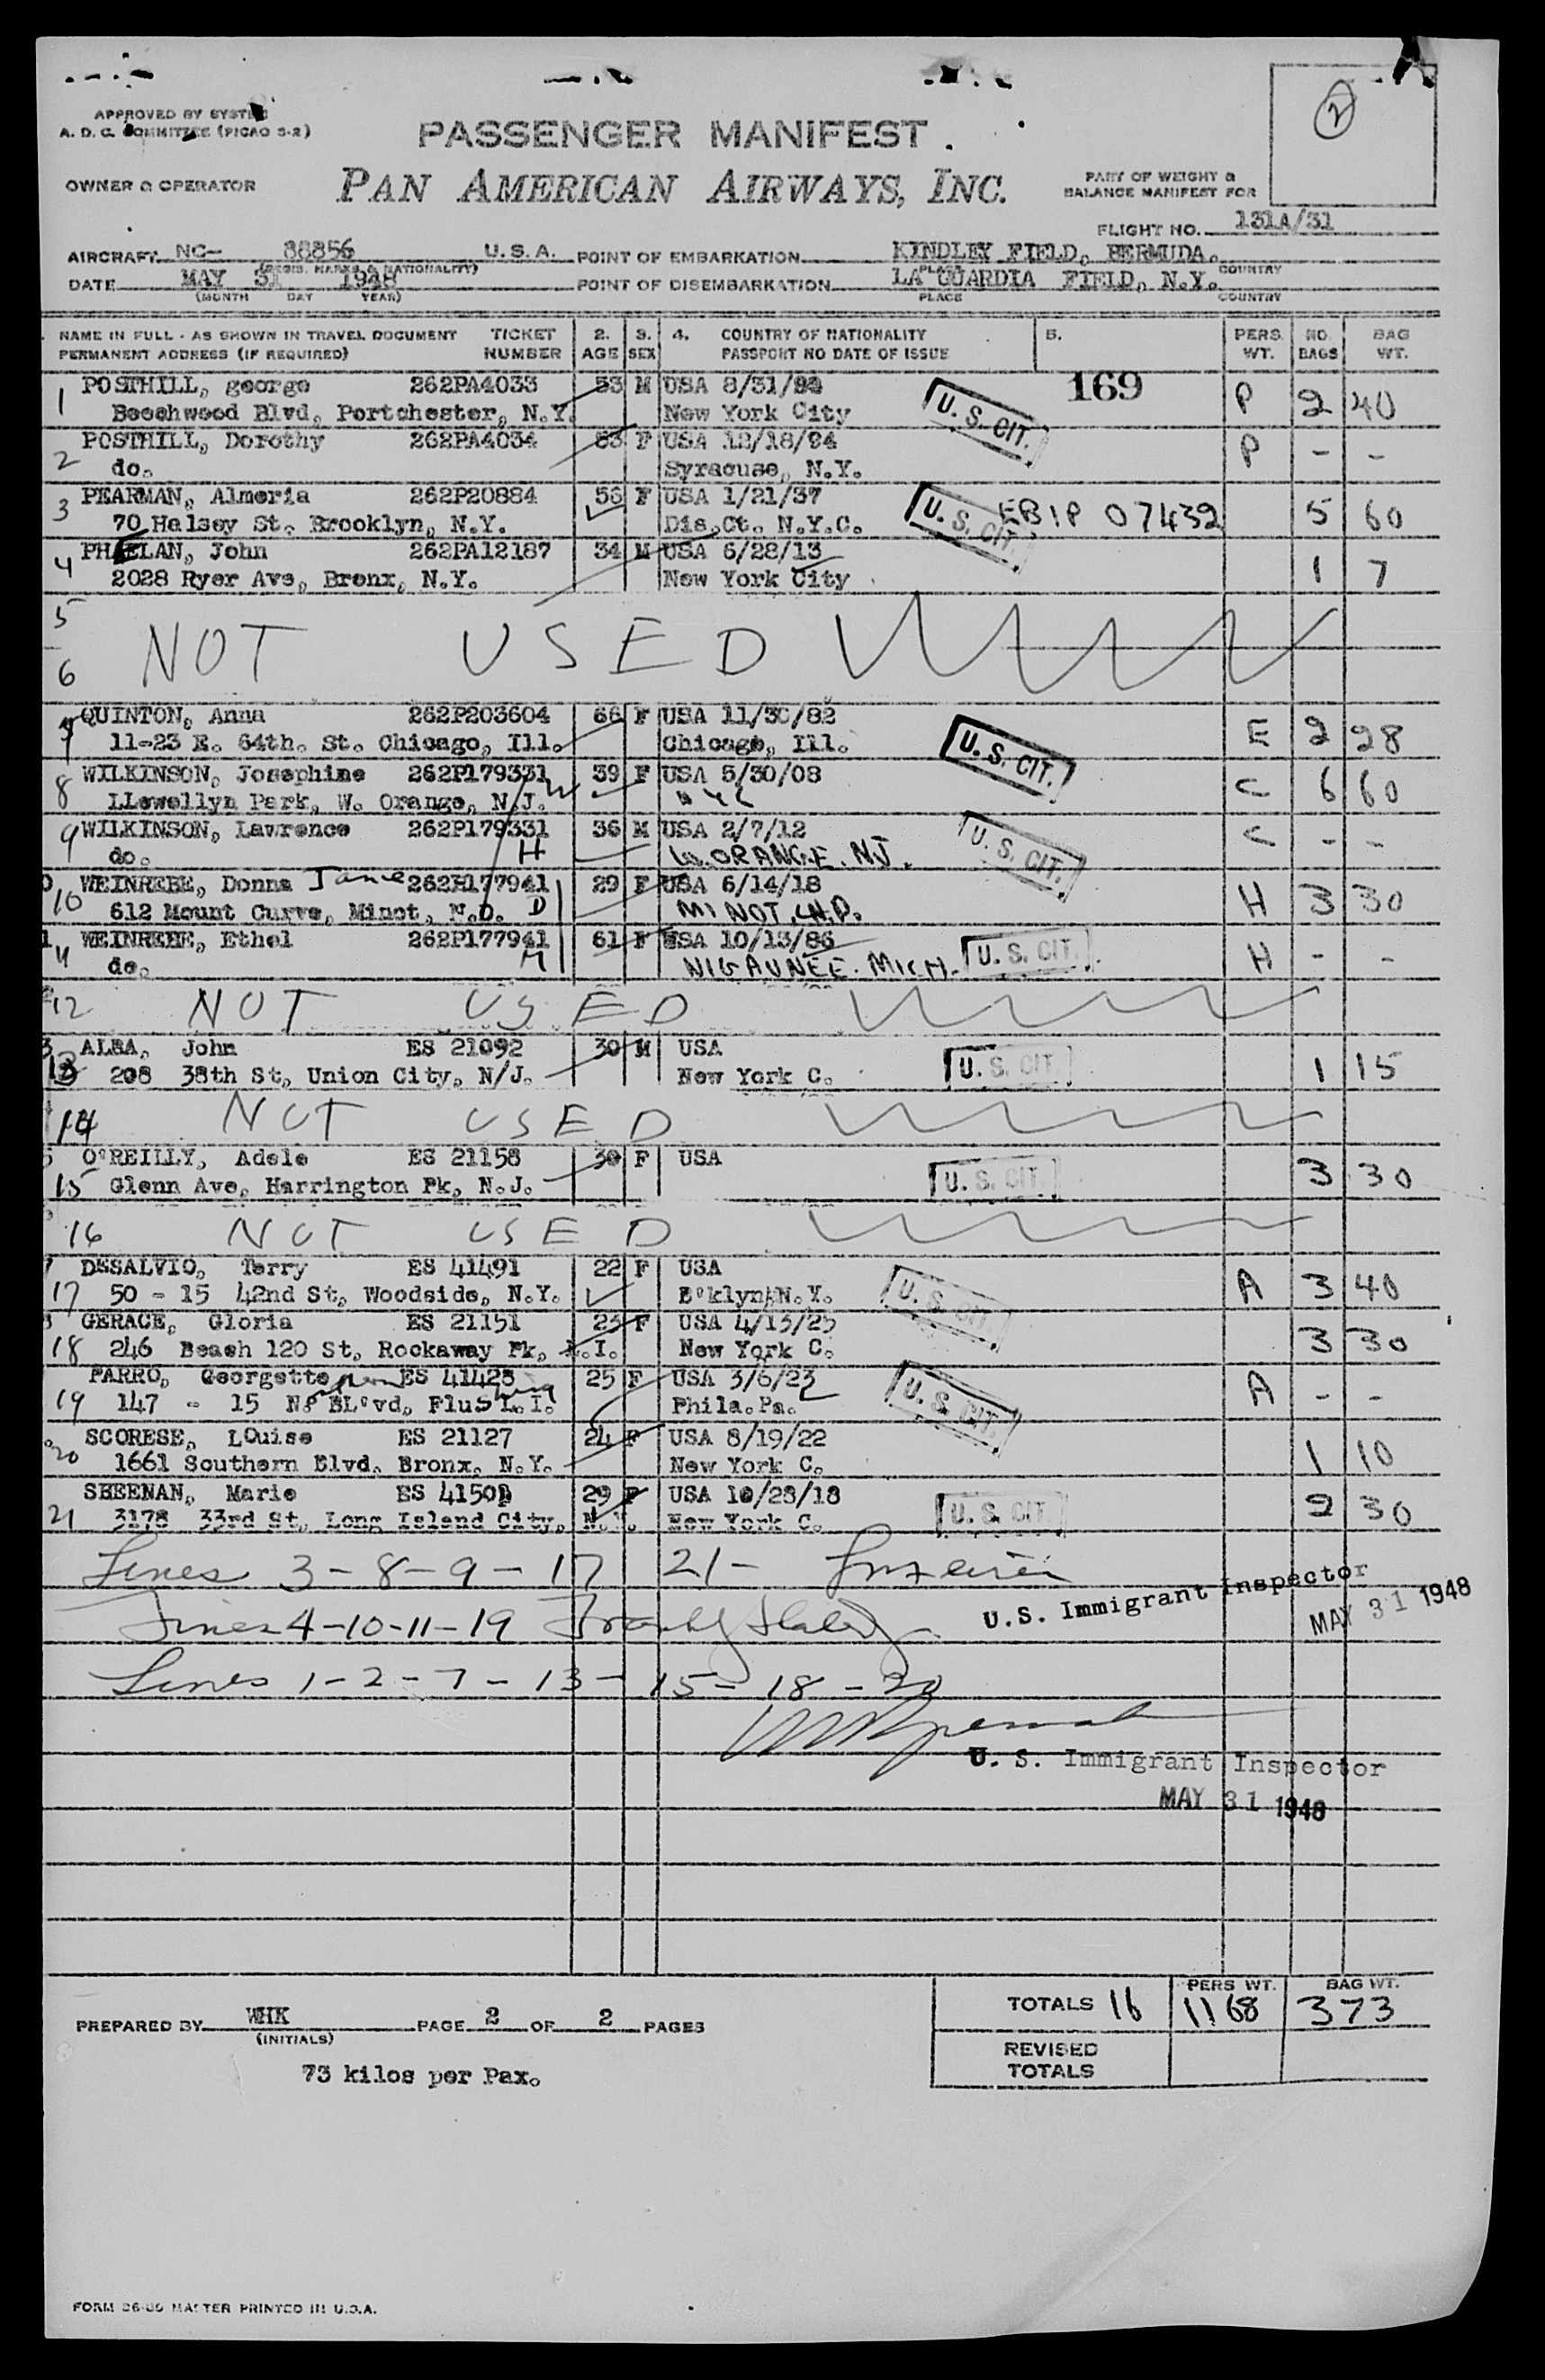 APPROVED BY SYSTEM
A. D. C. COMMITTEE (PICAO S-2)
2
PASSENGER MANIFEST
OWNER & OPERATOR
PAN AMERICAN AIRWAYS, INC.
PART OF WEIGHT &
BALANCE MANIFEST FOR
FLIGHT NO. 131A/31
AIRCRAFT NC- 88856 U.S.A. POINT OF EMBARKATION KINDLEY FIELD, BERMUDA.
(REGIS. MARKS & NATIONALITY) PLACE COUNTRY
DATE MAY 31 1948 POINT OF DISEMBARKATION LA GUARDIA FIELD, N.Y.
(MONTH DAY YEAR) PLACE COUNTRY
NAME IN FULL - AS SHOWN IN TRAVEL DOCUMENT TICKET 2. 3. 4. COUNTRY OF NATIONALITY 5. PERS. NO. BAG
PERMANENT ADDRESS (IF REQUIRED) NUMBER AGE SEX PASSPORT NO DATE OF ISSUE WT. BAGS WT.
1 POSTHILL, george 262PA4033 53 M USA 8/31/94 169 P 2 40
Beechwood Blvd, Portchester, N.Y. New York City U. S. CIT.
2 POSTHILL, Dorothy 262PA4034 53 F USA 12/18/94 P - -
do. Syracuse, N.Y.
3 PEARMAN, Almeria 262P20884 56 F USA 1/21/37 U. S. CIT. EBIP 07432 5 60
70 Halsey St. Brooklyn, N.Y. Dis.Ct. N.Y.C.
4 PHELAN, John 262PA12187 34 M USA 6/28/13 1 7
2028 Ryer Ave, Bronx, N.Y. New York City
5
6 NOT USED
7 QUINTON, Anna 262P203604 66 F USA 11/30/82 E 2 28
11-23 E. 64th. St. Chicago, Ill. Chicago, Ill. U. S. CIT.
8 WILKINSON, Josephine 262P179331 39 F USA 5/30/08 C 6 60
LLewellyn Park, W. Orange, N.J. W NYC
9 WILKINSON, Lawrence 262P179331 36 M USA 2/7/12 C - -
do. H W. ORANGE. NJ. U. S. CIT.
10 WEINREBE, Donna Jane 262P177941 29 F USA 6/14/18 H 3 30
612 Mount Curve, Minot, N.D. D MINOT, N.D.
11 WEINREBE, Ethel 262P177941 61 F USA 10/13/86 H - -
do. M NIGAUNEE. MICH. U. S. CIT.
12 NOT USED
13 ALBA, John ES 21092 30 M USA 1 15
208 38th St, Union City, N/J. New York C. U. S. CIT.
14 NOT USED
15 O'REILLY, Adele ES 21158 30 F USA 3 30
Glenn Ave, Harrington Pk, N.J. U. S. CIT.
16 NOT USED
17 DESALVIO, Terry ES 41491 22 F USA A 3 40
50 - 15 42nd St, Woodside, N.Y. B'klyn, N.Y. U. S. CIT.
18 GERACE, Gloria ES 21151 23 F USA 4/13/25 3 30
246 Beach 120 St, Rockaway Pk, L.I. New York C.
19 PARRO, Georgette ES 41423 25 F USA 3/6/23 A - -
147 - 15 BL'vd, Flushing L.I. Phila. Pa. U. S. CIT.
20 SCORESE, LOuise ES 21127 24 F USA 8/19/22 1 10
1661 Southern Blvd, Bronx, N.Y. New York C.
21 SHEENAN, Marie ES 4150 29 F USA 10/28/18 2 30
3178 33rd St, Long Island City, N.Y. New York C. U. S. CIT.
Lines 3 - 8 - 9 - 17 21 -
U.S. Immigrant Inspector
MAY 31 1948
Lines 4-10-11-19
Lines 1 - 2 - 7 - 13 - 15 - 18 - 20
U. S. Immigrant Inspector
MAY 31 1948
TOTALS 16 PERS WT. 1168 BAG WT. 373
PREPARED BY WHK PAGE 2 OF 2 PAGES
(INITIALS)
REVISED
TOTALS
73 kilos per Pax.
FORM MASTER PRINTED IN U.S.A.